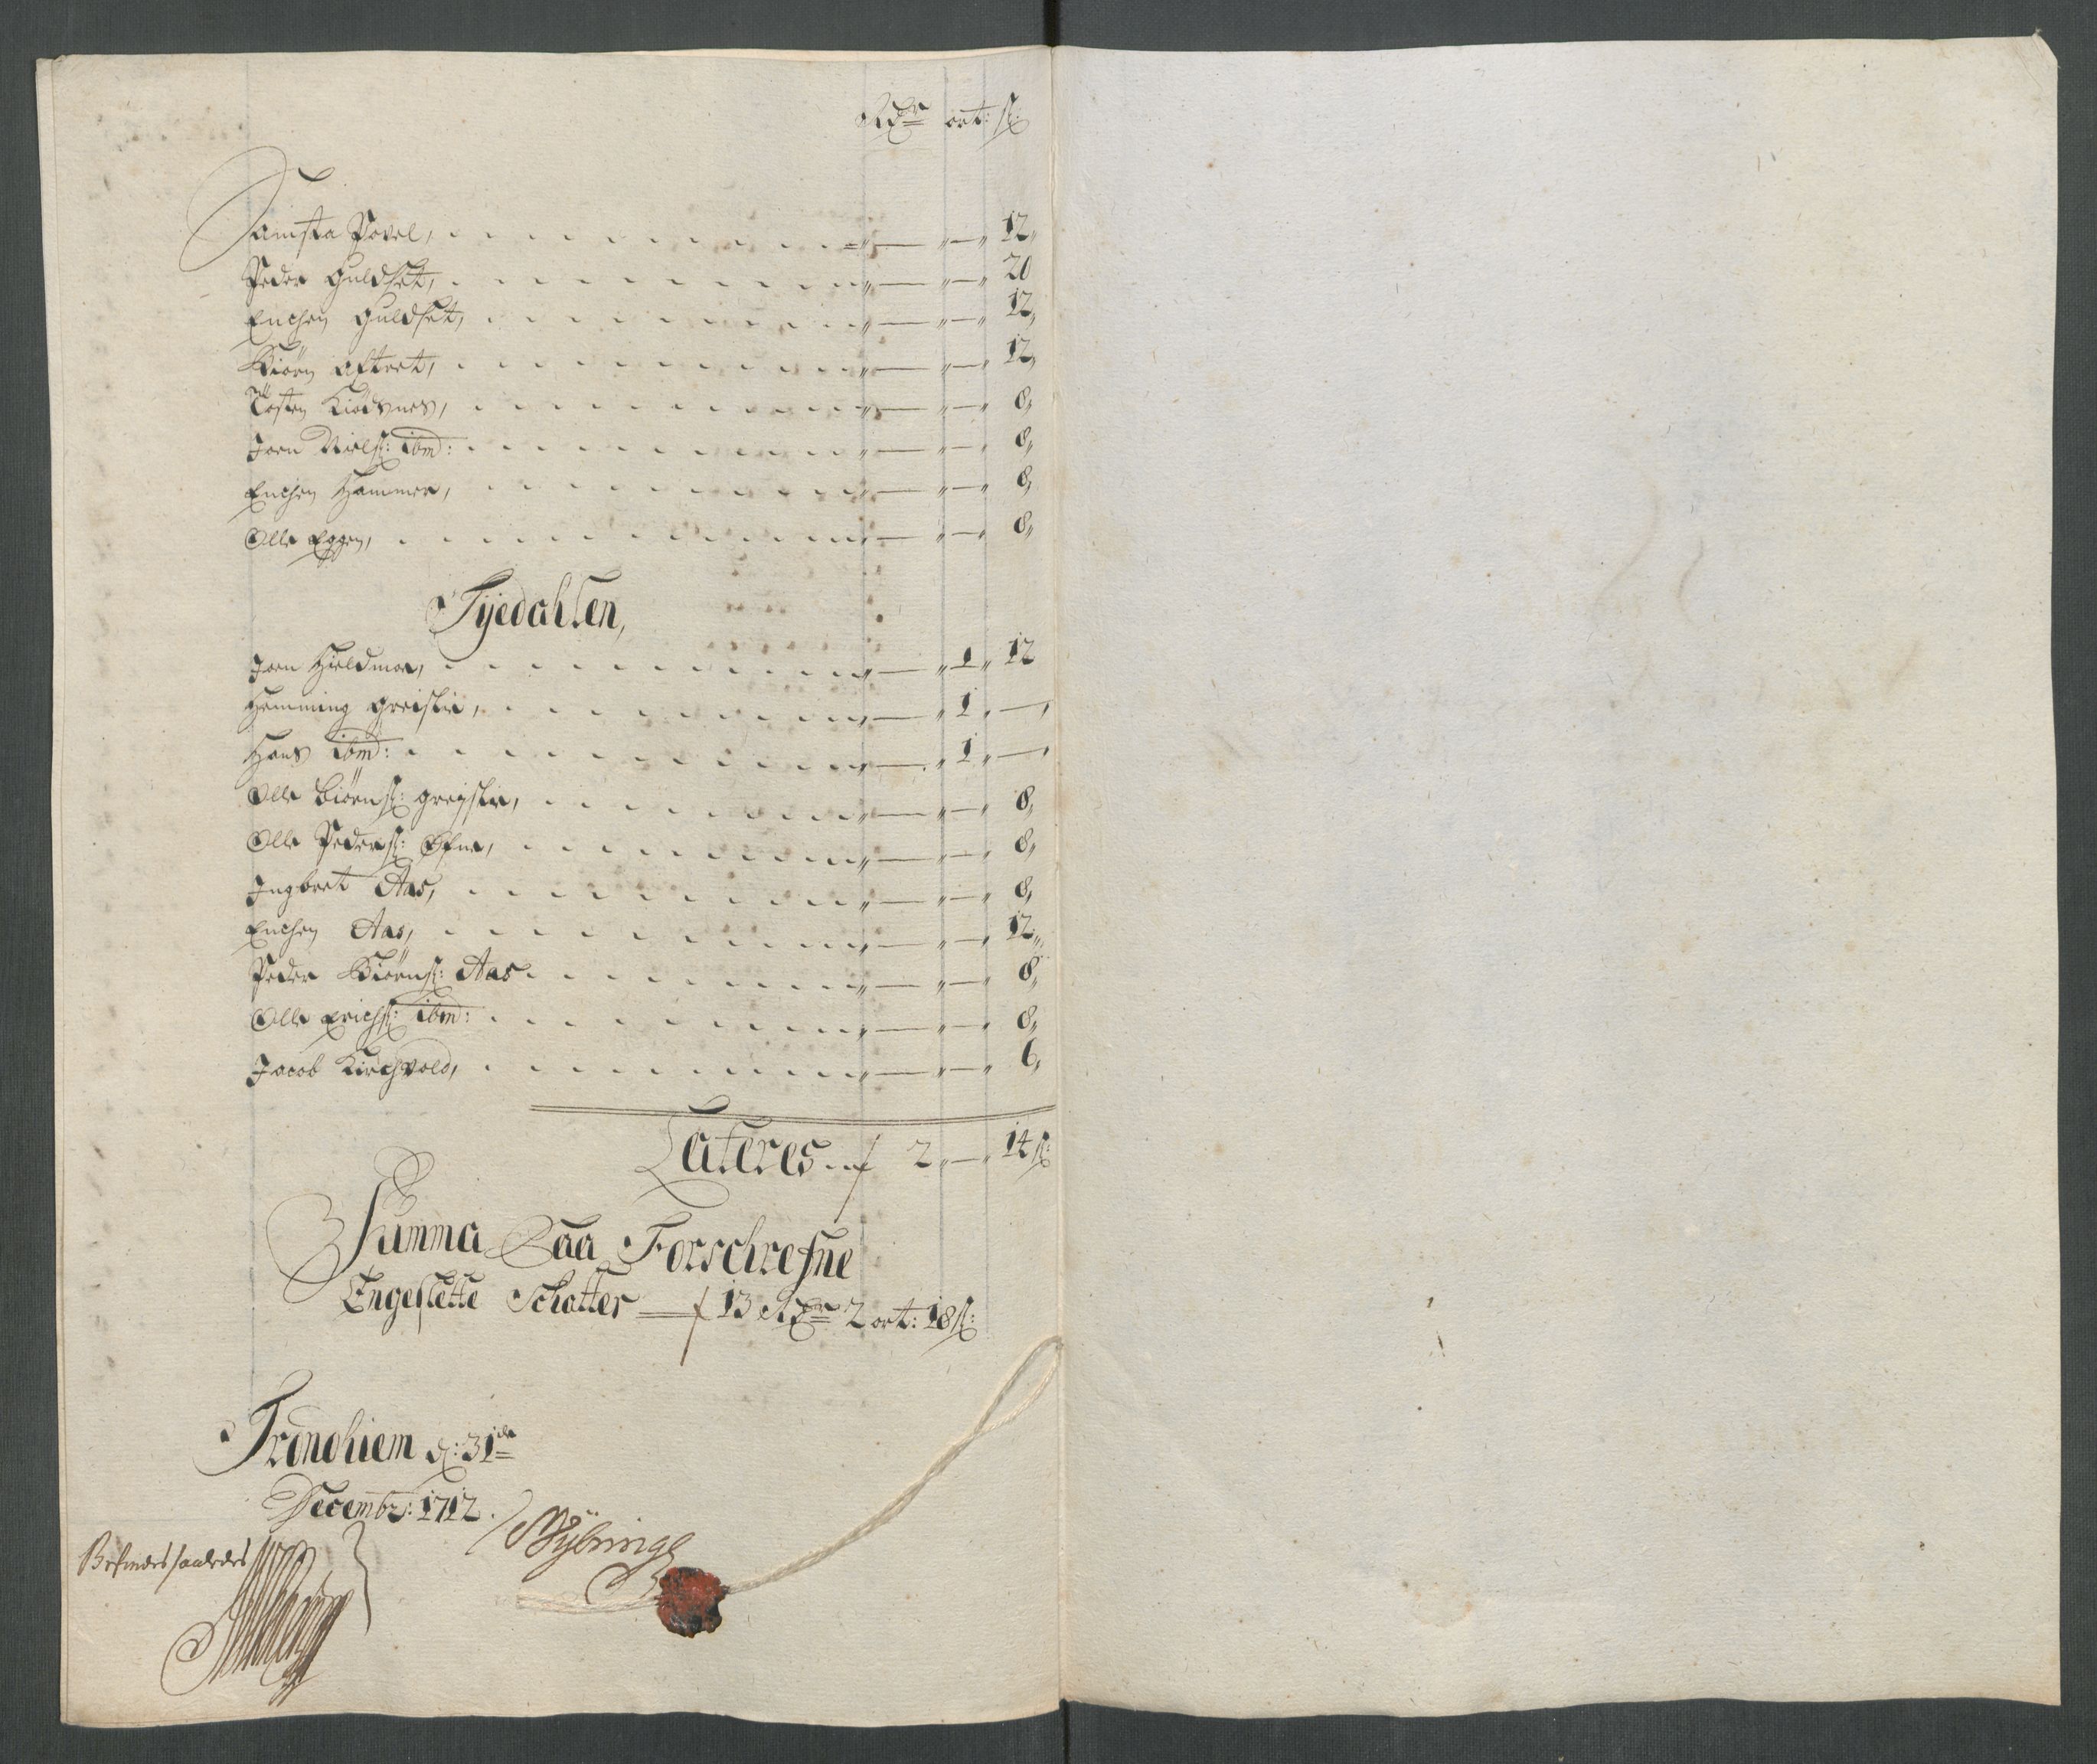 Rdr ort: ß:
Jamsta Povel, „ — „ — „ 12„
Peder Guldset, „ — „ — „ 20
Enchen Guldset, „ — „ — „ 12„
Biørn Aftret, „ — „ — „ 12„
Tosten Kiøsnes, „ — „ — „ 8„
Joen Nielß: ibm: „ — „ — „ 8„
Enchen Hammer, „ — „ — „ 8„
Olle Eggen, „ — „ — „ 8„
Tyedahlen,
Joen Hieldmoe, „ — „ 1 „ 12
Hemming Greislie, „ — „ 1 „ —
Hans ibm: „ — „ 1 „ —
Olle Biørnß: Greyslie, „ — „ — „ 8„
Olle Pederß: Øfne, „ — „ — „ 8„
Ingbret Aas, „ — „ — „ 8„
Enchen Aas, „ — „ — „ 12„
Peder Biørnß: Aas „ — „ — „ 8„
Olle Erichß: ibm: „ — „ — „ 8„
Jacob Kirchvold, „ — „ — „ 6„
Lateres 2 „ — „ 14 ß:
Summa Paa Forschrefne
Engeslette Schatter — 13 Rdr 2 ort: 18 ß:
Trondhiem d: 31de
Decembr: 1712.
Befindes saaledes